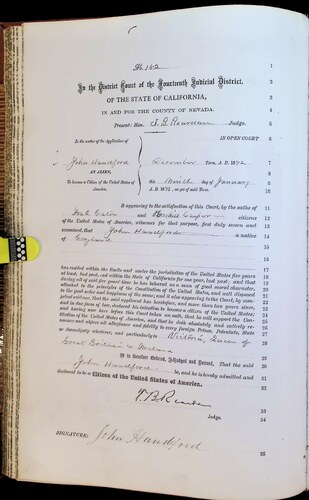 No 162
In the District Court of the Fourteenth Judicial District,
OF THE STATE OF CALIFORNIA,
IN AND FOR THE COUNTY OF NEVADA.
Present: Hon. T. B. Reardan Judge.
In the matter of the Application of
IN OPEN COURT
John Handford
AN ALIEN,
To become a Citizen of the United States of America.
December Term, A. D. 1872
this Ninth day of January
A. D. 187, as yet of said Term.
It appearing to the satisfaction of this Court, by the oaths of
and citizens
of the United States of America, witnesses for that purpose, first duly sworn and
examined, that John Handford a native
of England
has resided within the limits and under the jurisdiction of the United States five years
at least, last past, and within the State of California for one year, last past; and that
during all of said five years' time he has behaved as a man of good moral character,
attached to the principles of the Constitution of the United States, and well disposed
to the good order and happiness of the same; and it also appearing to the Court, by com-
petent evidence, that the said applicant has heretofore, and more than two years since,
and in due form of law, declared his intention to become a citizen of the United States;
and having now here before this Court taken an oath, that he will support the Consti-
tution of the United States of America, and that he doth absolutely and entirely re-
nounce and abjure all allegiance and fidelity to every foreign Prince, Potentate, State
or Sovereignty whatever, and particularly to Victoria, Queen of
Great Britain & Ireland
It is therefore Ordered, Adjudged and Decreed, That the said
John Handford be, and he is hereby admitted and
declared to be a Citizen of the United States of America.
T. B. Reardan
Judge.
SIGNATURE: John Handford